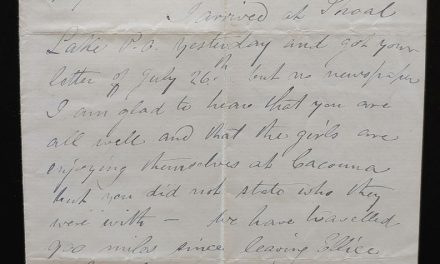 I arrived at Shoal
Lake P.O. yesterday and got your
letter of July 26th but no newspaper
I am glad to hear that you are
all well and that the girls are
enjoying themselves at Cacouna
but you did not state who they
were with — We have travelled
900 miles since leaving Ellice